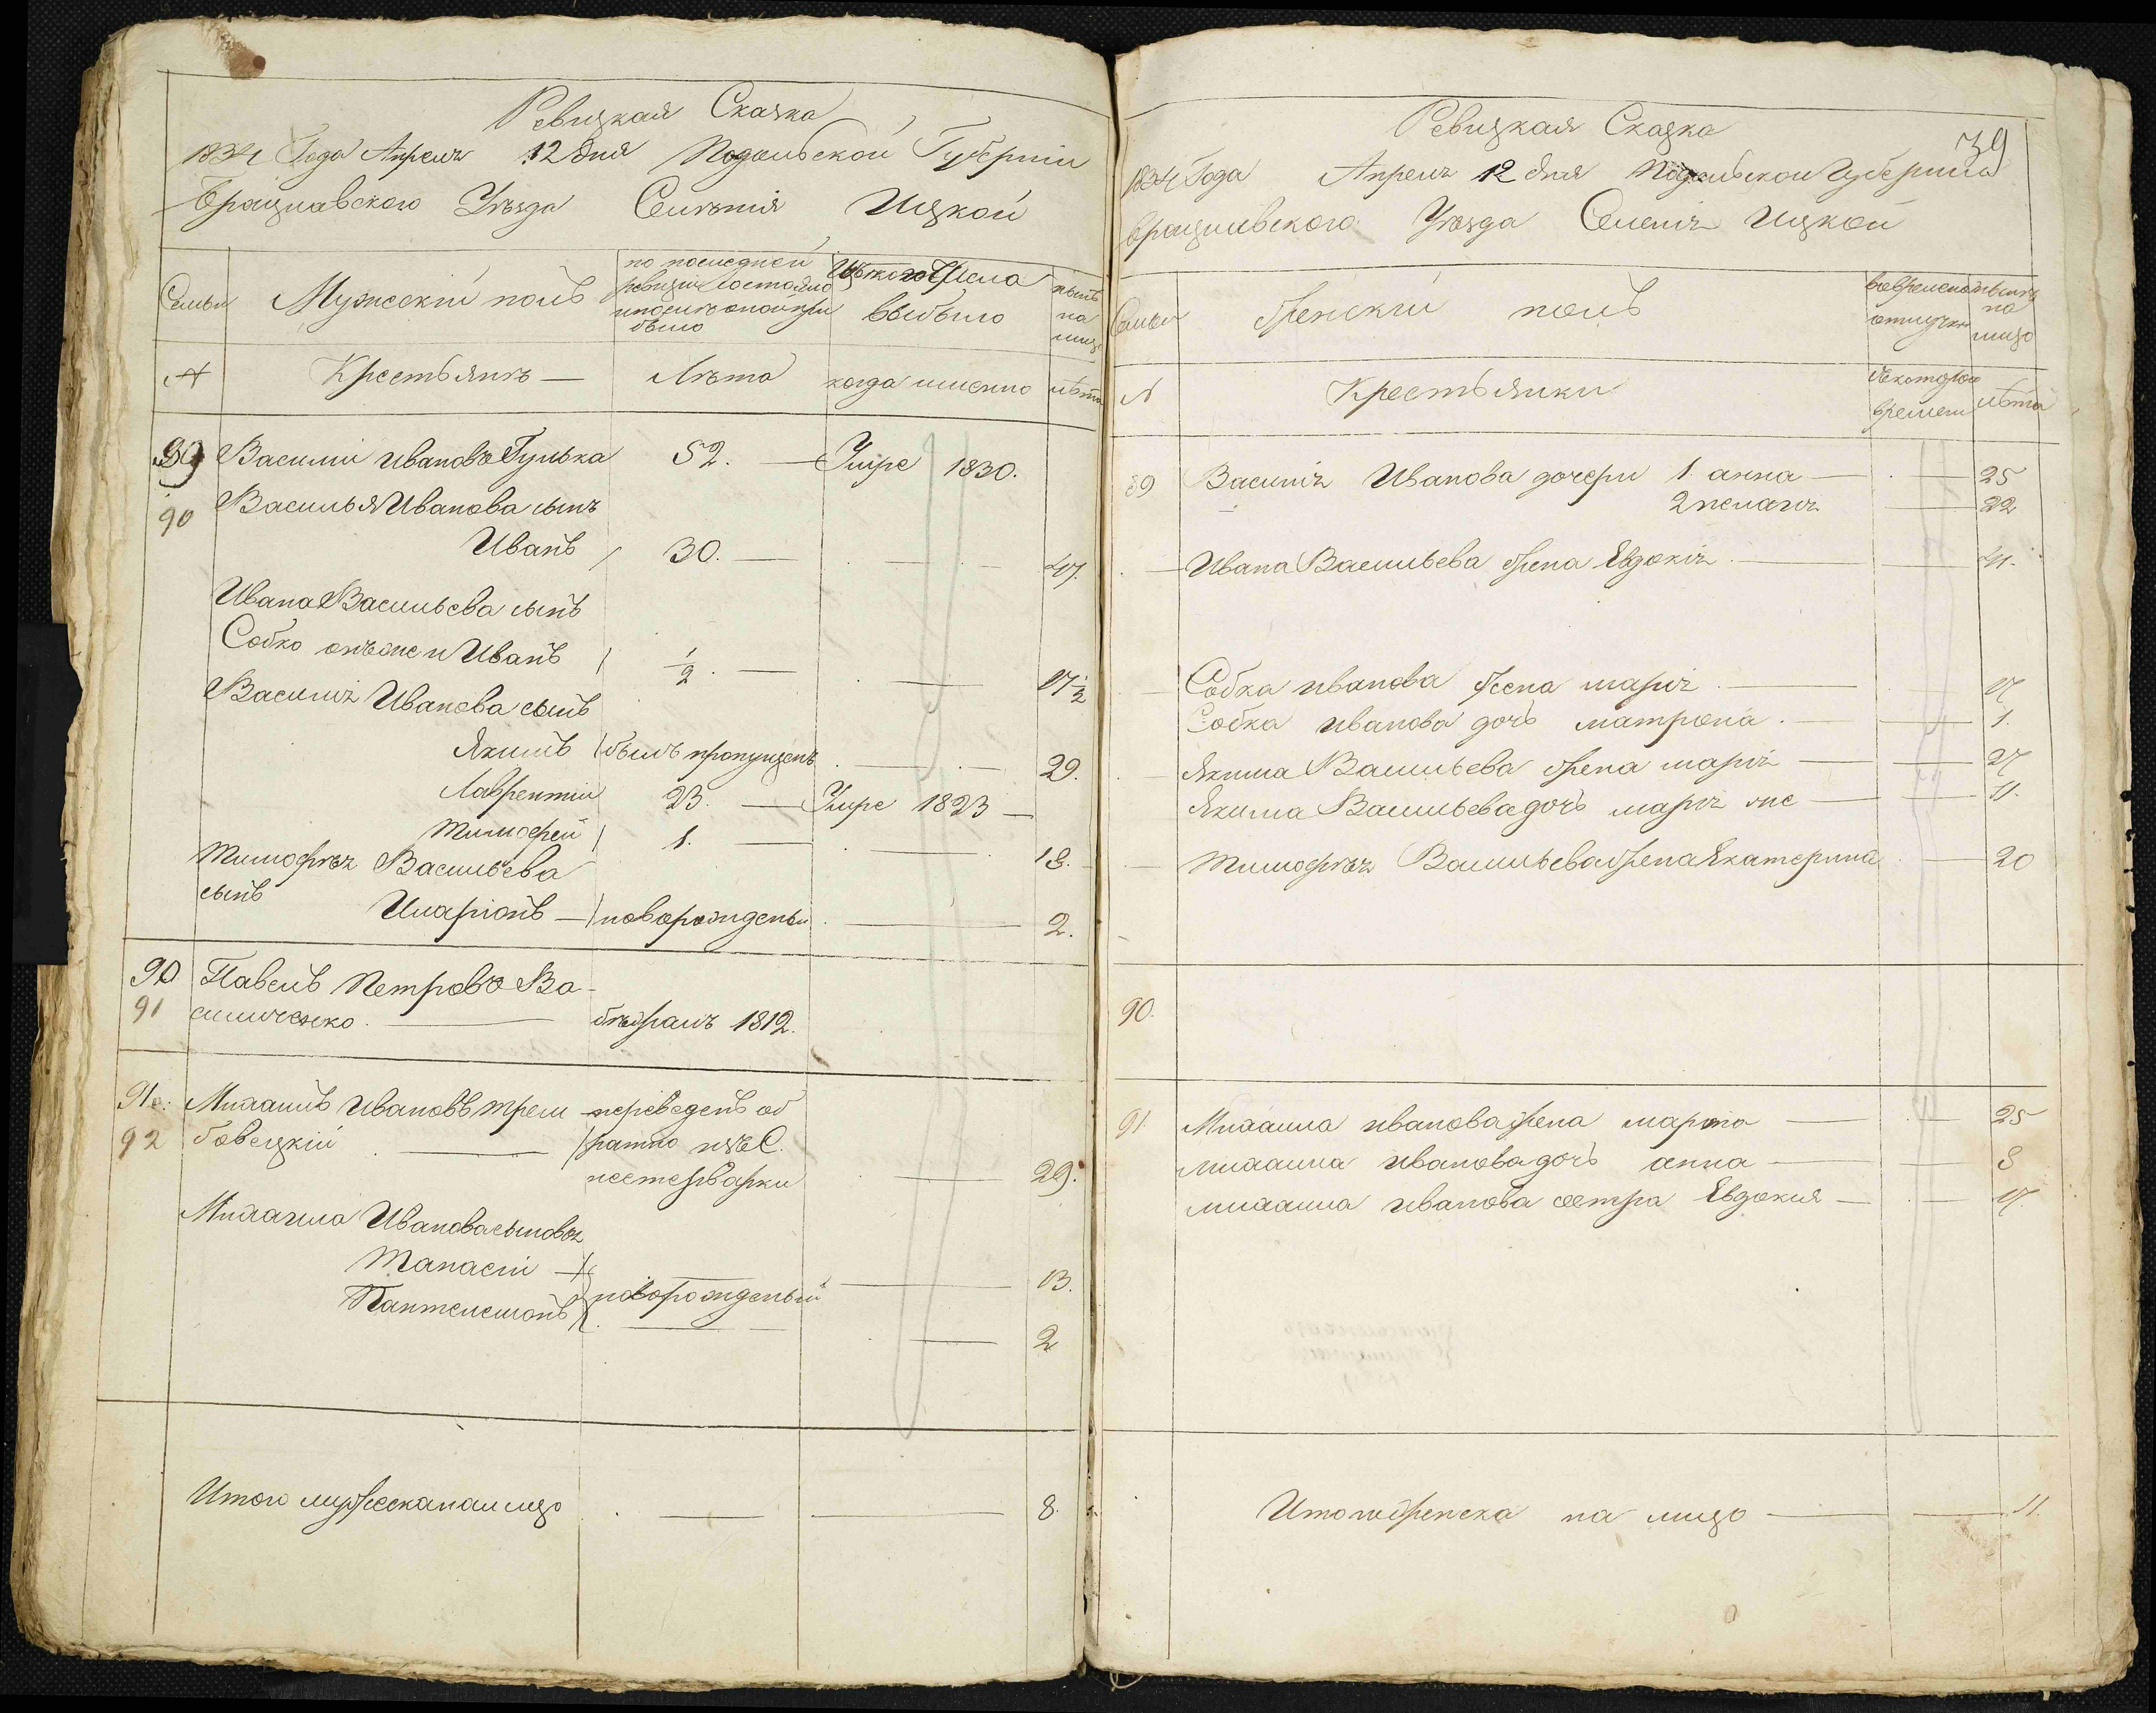 Ревизкая Сказка
1834 Года Апреля 12 дня Подольской Губернiи
Брацлавского Уѣзда Селѣнiя Ицкой
Семьи
Мужескiй полъ
по последней
ревизiи состояло
и после оной
было
Изъ того числа
выбыло
нынѣ
на
лицо
№
Крестьянъ —
Лѣта
когда именно
лѣта
89 Василiй Ивановъ Гулька 52. — Умре 1830.
90 Василья Иванова сынъ
Иванъ 30. — 47.
Ивана Васильева сынъ
Собко онъ же и Иванъ 1/2. — 17 1/2
Василія Иванова сынъ
Якимъ былъ пропущенъ — 29.
Лаврентiй 23. — Умре 1823 —
Тимофей 1. — 18.
Тимофѣя Васильева
сынъ
Иларiонъ — новорожденый — 2.
90 Павелъ Петровъ Ва-
91 силиченко — бѣжалъ 1812.
91. Михаилъ Ивановъ Трем- переведенъ об
92 бовецкiй — ратно изъ С.
нестерварки — 29.
Михаила Иванова сыновья
Танасiй — 13.
Пантелемонъ новорожденый — 2
Итого мужеска на лицо — 8.
39
Ревизкая Сказка
1834 Года Апреля 12 дня Подольской Губернии
Брацлавского Уѣзда Селенiя Ицкой
Семьи
Женскiй полъ
во временной
отлучке
нынѣ
на
лицо
№
Крестьянки
с которого
времени
лѣта
89 Василiя Иванова дочери 1. анна — 25
2 пелагия — 22
Ивана Васильева жена Евдокiя — 41.
Собка иванова жена марiя — 17
Собка иванова дочь матрона — 1.
Якима Васильева жена марiя — 27
Якима Васильева дочь марiя же — 11.
Тимофѣя Васильева жена Екатерина — 20
90.
91. Михаила иванова жена марта — 25
михаила иванова дочь анна — 8
михаила иванова сестра Евдокия — 17.
Итого женска на лицо — 11.